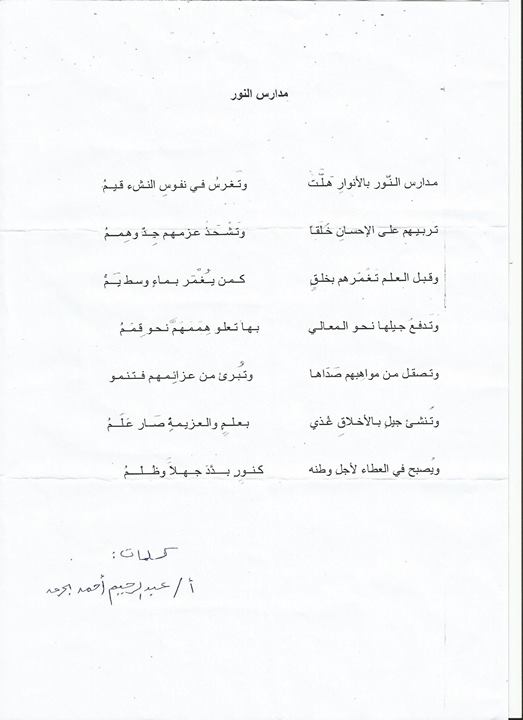 مدارس النور
مدارس النّور بالأنوارِ هَلَّتْ وتَغرسُ في نفوسِ النشء قيمُ
تربيهم على الإحسانِ خَلَقاً وتَشْحَذُ عزمهم جِدٌ وهِممُ
وقبل العلم تَغمَرهم بخلقٍ كمن يُغْمَر بماءِ وسط يَمُّ
وتَدفعُ جيلها نحو المعالي بها تعلو هِمَمَهَمَّ نحو قِمَمُ
وتصقل من مواهبهم صَدَاها وتُبرئ من عزائِمهم فتنمو
وتُنشئ جيلِ بالأخلاقِ غُذي بعلمٍ والعزيمةِ صَار عَلَمُ
ويُصبح في العطاء لأجل وطنه كنورٍ بدّدَ جهلاً وظلمُ
كلمات:
أ/ عبدالرحيم أحمد